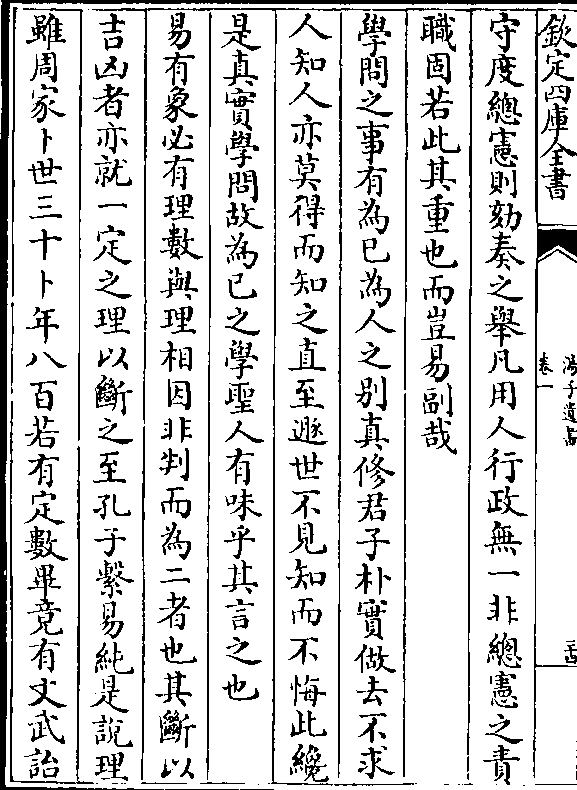 欽定四庫全書
卷一
守度總憲則劾奏之舉凡用人行政無一非總憲之責
職固若此其重也而豈易副哉
學問之事有為已為人之别真修君子朴實做去不求
人知人亦莫得而知之直至遯世不見知而不悔此纔
是真實學問故為已之學聖人有味乎其言之也
易有象必有理數與理相因非判而為二者也其斷以
吉凶者亦就一定之理以斷之至孔子繫易純是說理
雖周家卜世三十卜年八百若有定數畢竟有文武詒